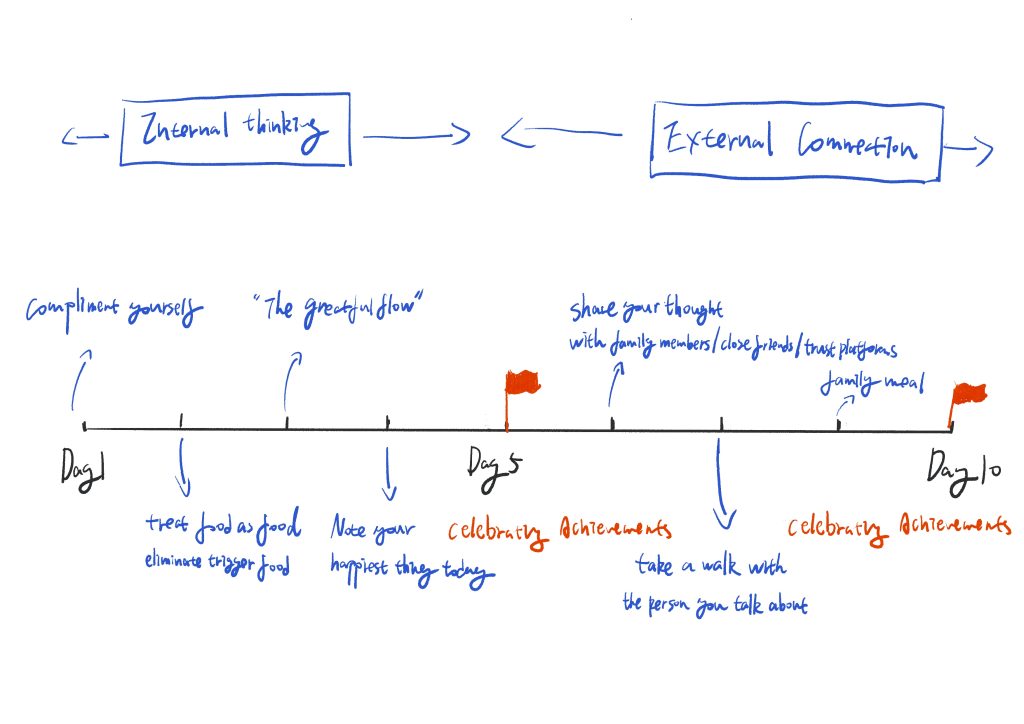 Internal thinking
External Connection
Compliment yourself
"The greatful flow"
share your thought
with family members/close friends/trust platforms
family meal
Day 1
Day 5
Day 10
treat food as food
eliminate trigger food
Note your
happiest thing today
celebrating Achievements
celebrating Achievements
take a walk with
the person you talk about